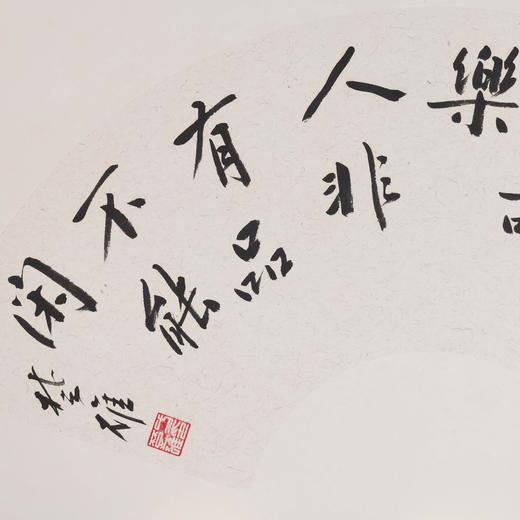 樂
人非
有品
不能
閑
雄